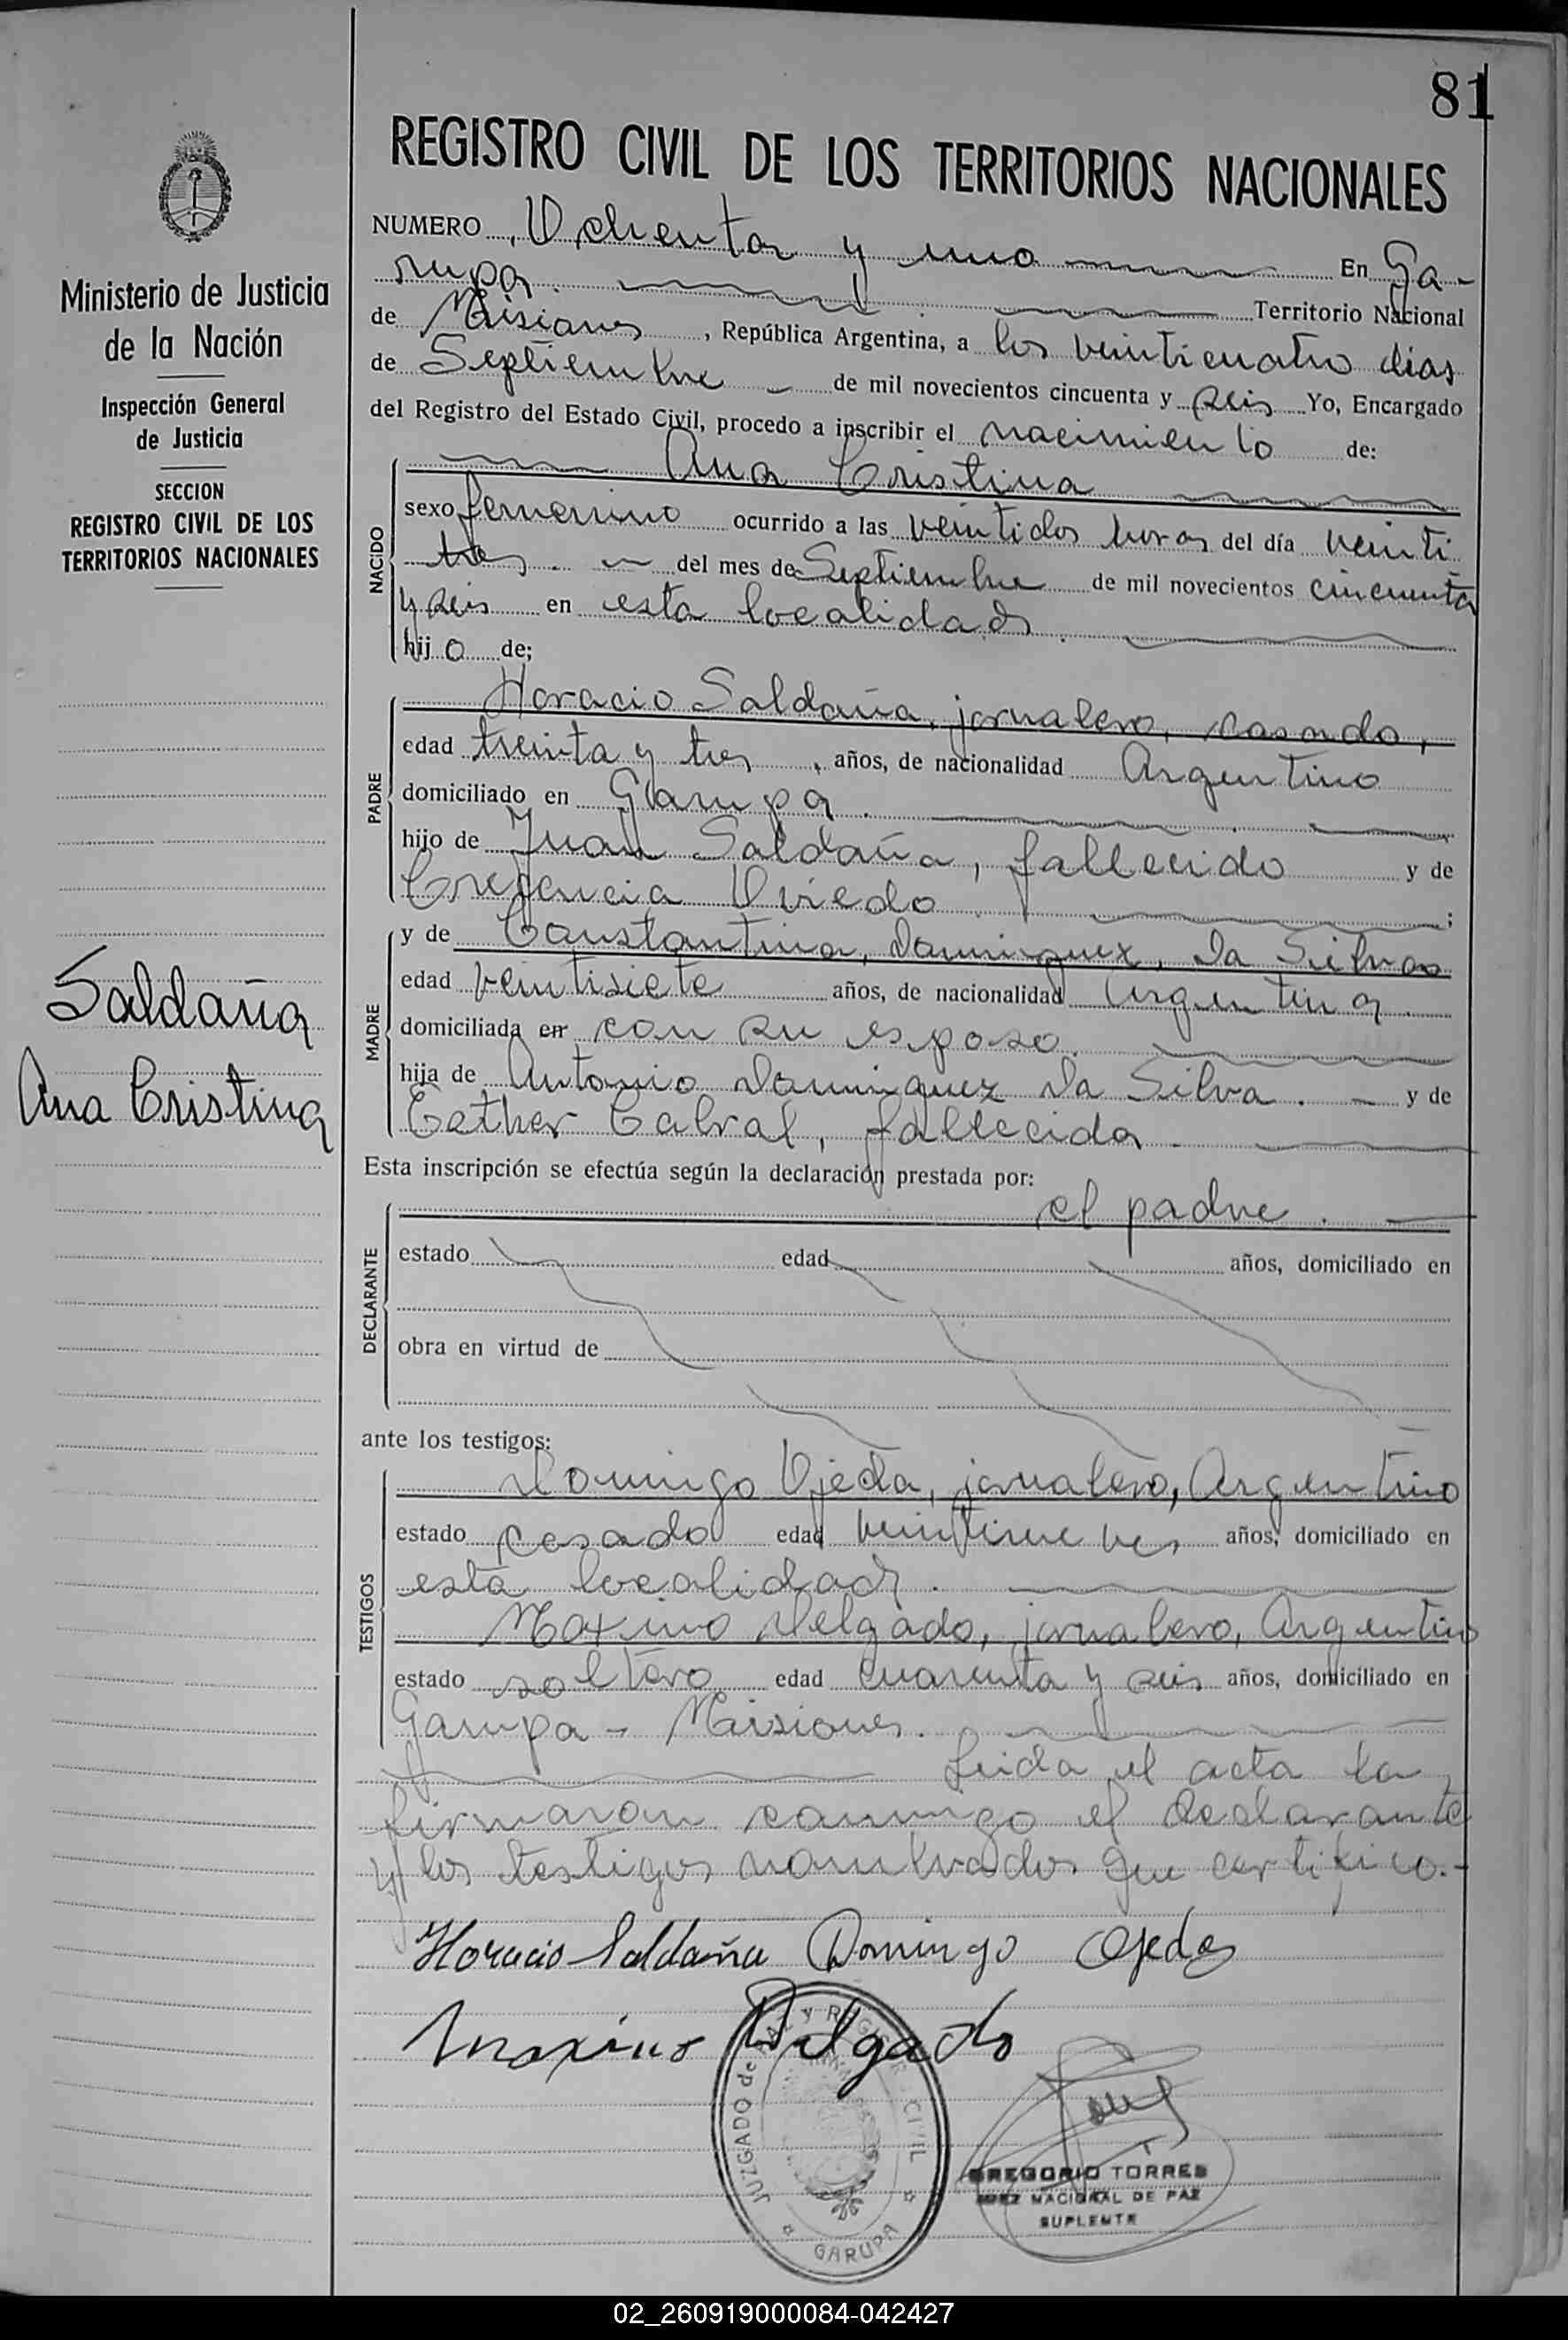 81
REGISTRO CIVIL DE LOS TERRITORIOS NACIONALES
Ministerio de Justicia
de la Nación
Inspección General
de Justicia
SECCION
REGISTRO CIVIL DE LOS
TERRITORIOS NACIONALES
Saldaña
Ana Cristina
NUMERO Ochenta y uno En Ga-
rupa. Territorio Nacional
de Misiones, República Argentina, a los veinticuatro dias
de Septiembre de mil novecientos cincuenta y seis Yo, Encargado
del Registro del Estado Civil, procedo a inscribir el nacimiento de:
NACIDO
Ana Cristina
sexo femenino ocurrido a las veintidos horas del día veinti
tres. del mes de Septiembre de mil novecientos cincuenta
y seis en esta localidad.
hijo de;
PADRE
Horacio Saldaña, jornalero, casado,
edad treinta y tres, años, de nacionalidad Argentino
domiciliado en Garupa.
hijo de Juan Saldaña, fallecido y de
Oviedo. ;
MADRE
y de Constantina, Dominguez, Da Silva
edad veintisiete años, de nacionalidad Argentina.
domiciliada en con su esposo.
hija de Antonio Dominguez Da Silva. y de
Esther Cabral, fallecida.
Esta inscripción se efectúa según la declaración prestada por:
DECLARANTE
el padre.
estado edad años, domiciliado en
obra en virtud de
ante los testigos:
TESTIGOS
Domingo Ojeda, jornalero, Argentino
estado casado edad años, domiciliado en
esta localidad.
Maximo Delgado, jornalero, Argentino
estado soltero edad cuarenta y seis años, domiciliado en
Garupa - Misiones.
Leida el acta la
firmaron conmigo el declarante
y los testigos nombrados que certifico.-
Horacio Saldaña Domingo Ojeda
Maximo Delgado
JUZGADO de PAZ Y REGISTRO CIVIL
GARUPA
GREGORIO TORRES
JUEZ NACIONAL DE PAZ
SUPLENTE
02_260919000084-042427